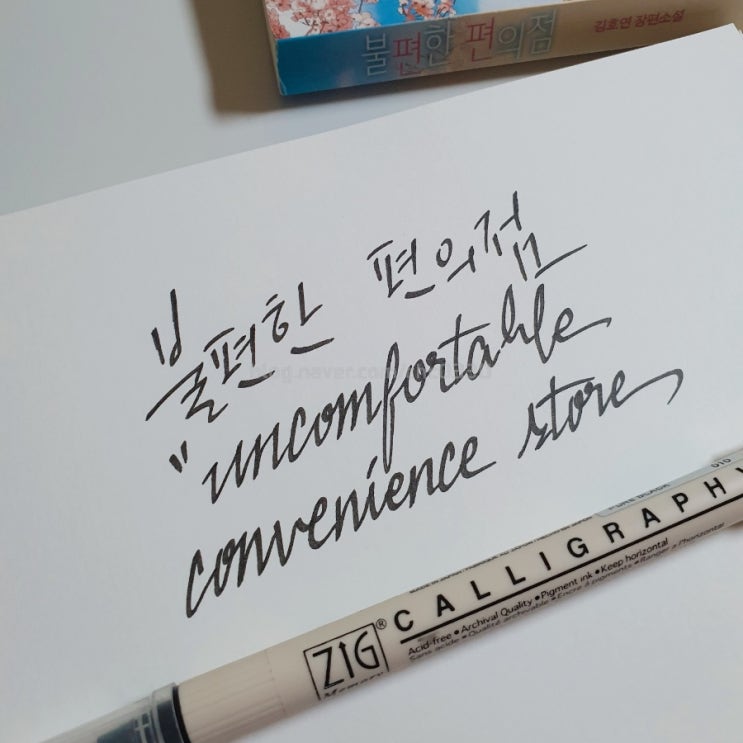 불편한 편의점
김호연 장편소설
불편한 편의점
"uncomfortable
convenience store
CALLIGRAPHY
ZIG®
Memory
Acid-free • Archival Quality • Pigment ink • Keep horizontal
Sans acide • Qualité archivable • Encre à pigments • Ranger à l'horizontal
PURE BLACK
010